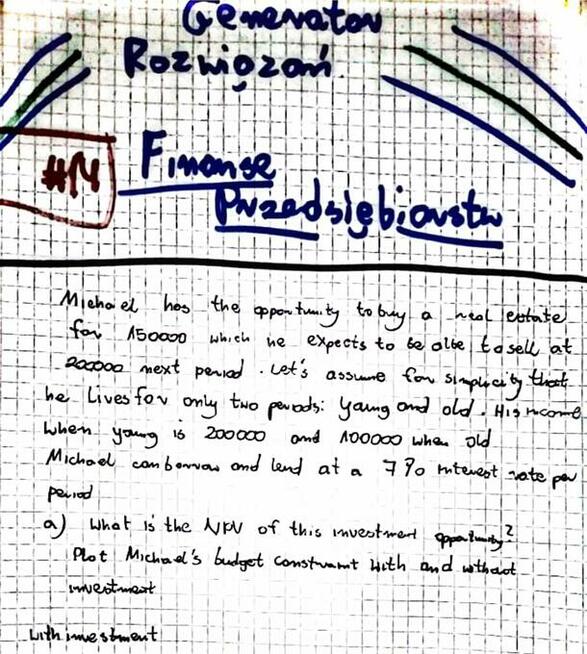 Generator
Rozwiązań
#14 Finanse
Przedsiębiorstw
Michael has the opportunity to buy a real estate
for 150000 which he expects to be able to sell at
200000 next period. Let's assume for simplicity that
he lives for only two periods: young and old. His income
when young is 200000 and 100000 when old
Michael can borrow and lend at a 7% interest rate per
period
a) What is the NPV of this investment opportunity?
Plot Michael's budget constraint with and without
investment
with investment